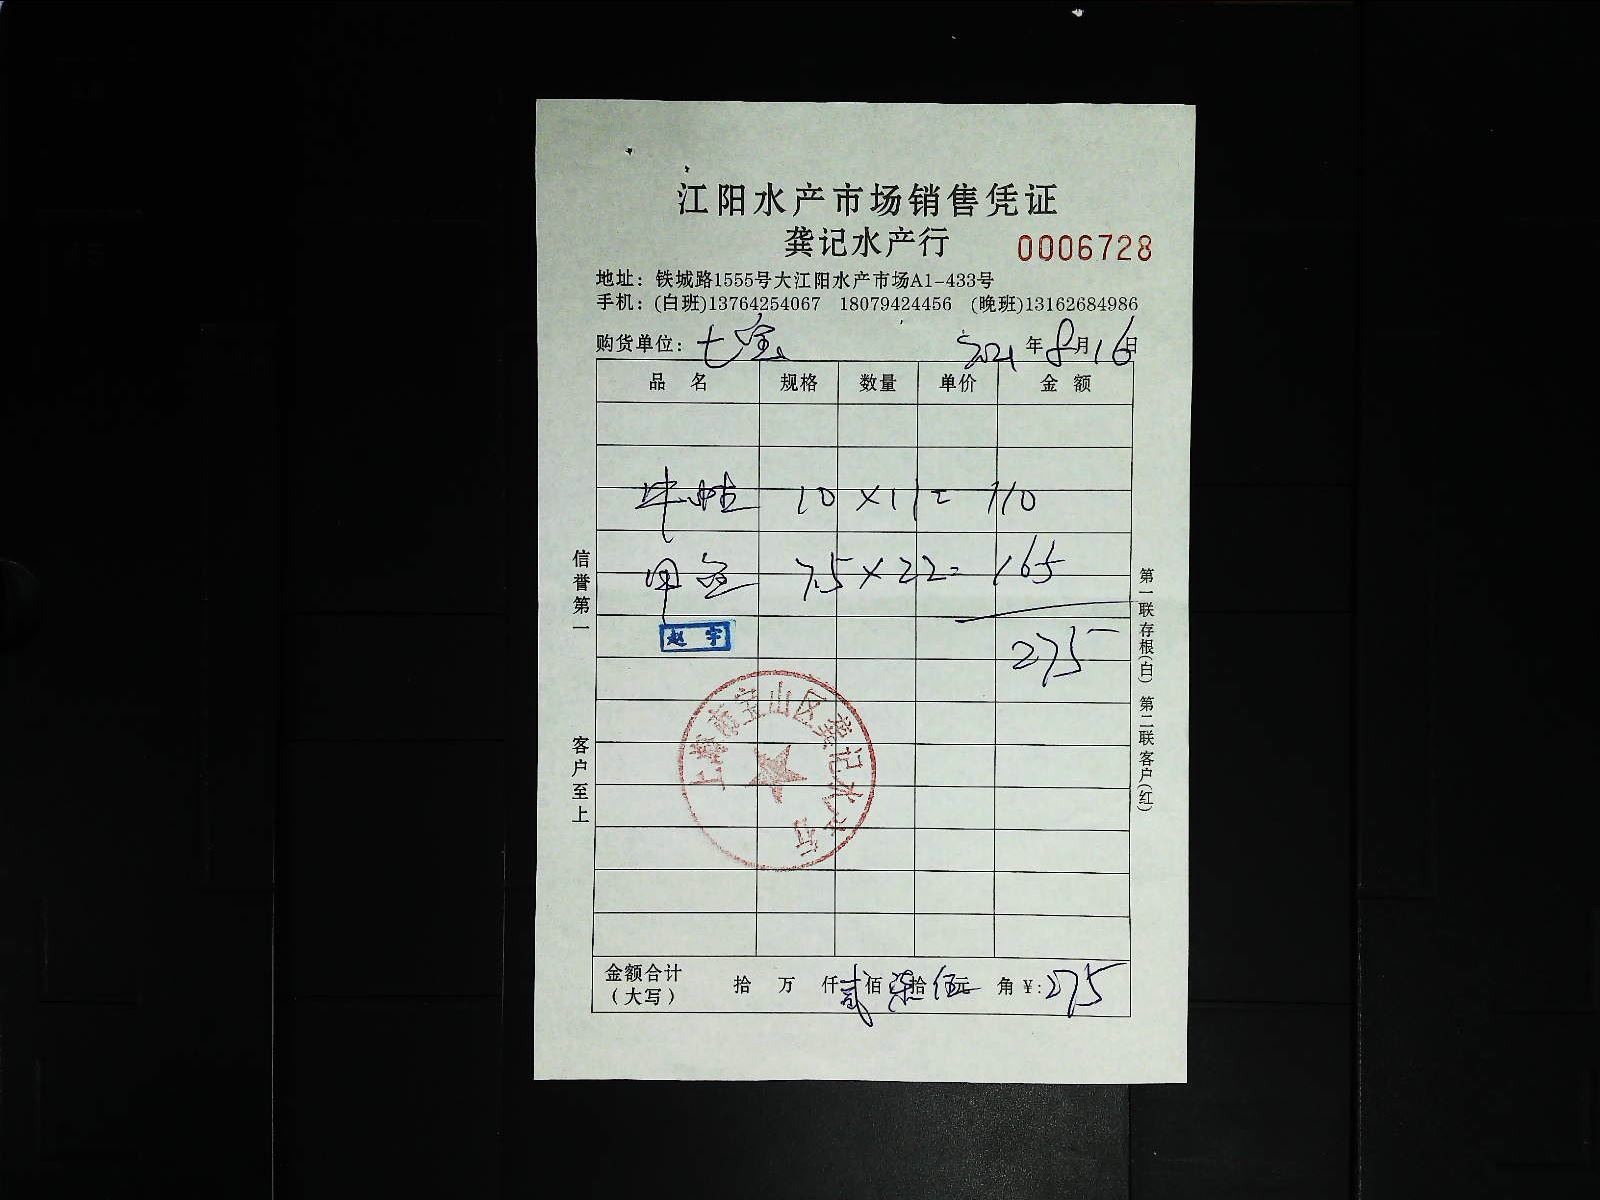 江阳水产市场销售凭证
龚记水产行 0006728
地址：铁城路1555号大江阳水产市场A1-433号
手机：(白班)13764254067 18079424456 (晚班)13162684986
购货单位：七宝 2021年8月16日
品名 规格 数量 单价 金额
牛蛙 10×11=110
甲鱼 7.5×22=165
赵宇
275
上海市宝山区龚记水产行
金额合计(大写) 拾 万 仟贰佰柒拾伍元 角 ¥:275
信誉第一
客户至上
第一联存根(白) 第二联客户(红)